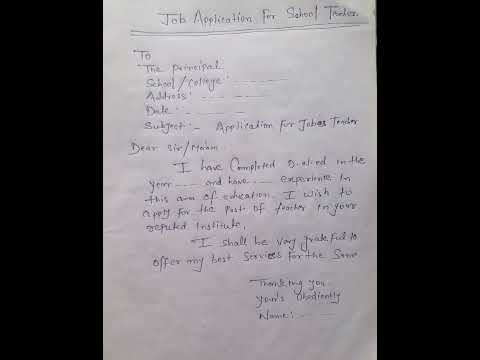 Job Application For School Teacher.
To
The principal
School/College: - - - - - -
Address: - - - - - -
Date: - - - - - -
Subject:- Application for Job as Teacher
Dear Sir/Ma'am
I have Completed D.el.ed in the
year ---- and have ---- experience in
this area of education. I wish to
apply for the post of teacher in your
reputed Institute.
I shall be very grateful to
offer my best Services for the Same
Thanking you.
your's obediently
Name: - - -